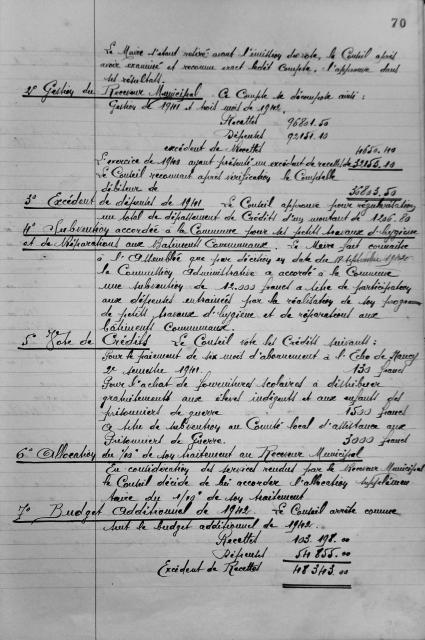 70
Le Maire s'étant retiré avant l'émission du vote, le Conseil après
avoir examiné et reconnu exact ledit Compte, l'approuve dans
ses résultats.
2° Gestion du Receveur Municipal. Ce Compte se décompte ainsi:
Gestion de 1941 et huit mois de 1942.
Recettes 96801.50
Dépenses 92151.10
excédent de Recettes 4650.40
L'exercice de 1940 ayant présenté un excédent de recettes de 32153.10
Le Conseil reconnait après vérification le Comptable
débiteur de 36803.50
3° Excédent de dépenses de 1941. Le Conseil approuve pour régularisation
un total de dépassement de Crédits d'un montant de 1206.80
4° Subvention accordée à la Commune pour ses petits travaux d'hygiène
et de Réparations aux Batiments Communaux. Le Maire fait connaître
à l'Assemblée que par décision en date du 17 Septembre
la Commission Administrative a accordé à la Commune
une subvention de 12.000 francs à titre de participation
aux dépenses entrainées par la réalisation de son programme
de petits travaux d'hygiène et de réparations aux
bâtiments Communaux.
5° Vote de Crédits. Le Conseil vote les Crédits suivants:
Pour le paiement de six mois d'abonnement à l'Echo de Nancy
2e semestre 1941. 130 francs
Pour l'achat de fournitures scolaires à distribuer
gratuitement aux élèves indigents et aux enfants des
prisonniers de guerre 1500 francs
A titre de subvention au Comité local d'assistance aux
Prisonniers de Guerre. 3000 francs
6° Allocation du /10° de son traitement au Receveur Municipal
En considération des services rendus par le Receveur Municipal
le Conseil décide de lui accorder l'allocation supplémen
taire du 1/10° de son traitement
7° Budget Additionnel de 1942. Le Conseil arrête comme
suit le budget additionnel de 1942.
Recettes 103.198.00
Dépenses 54855.00
Excédent de Recettes 48343.00